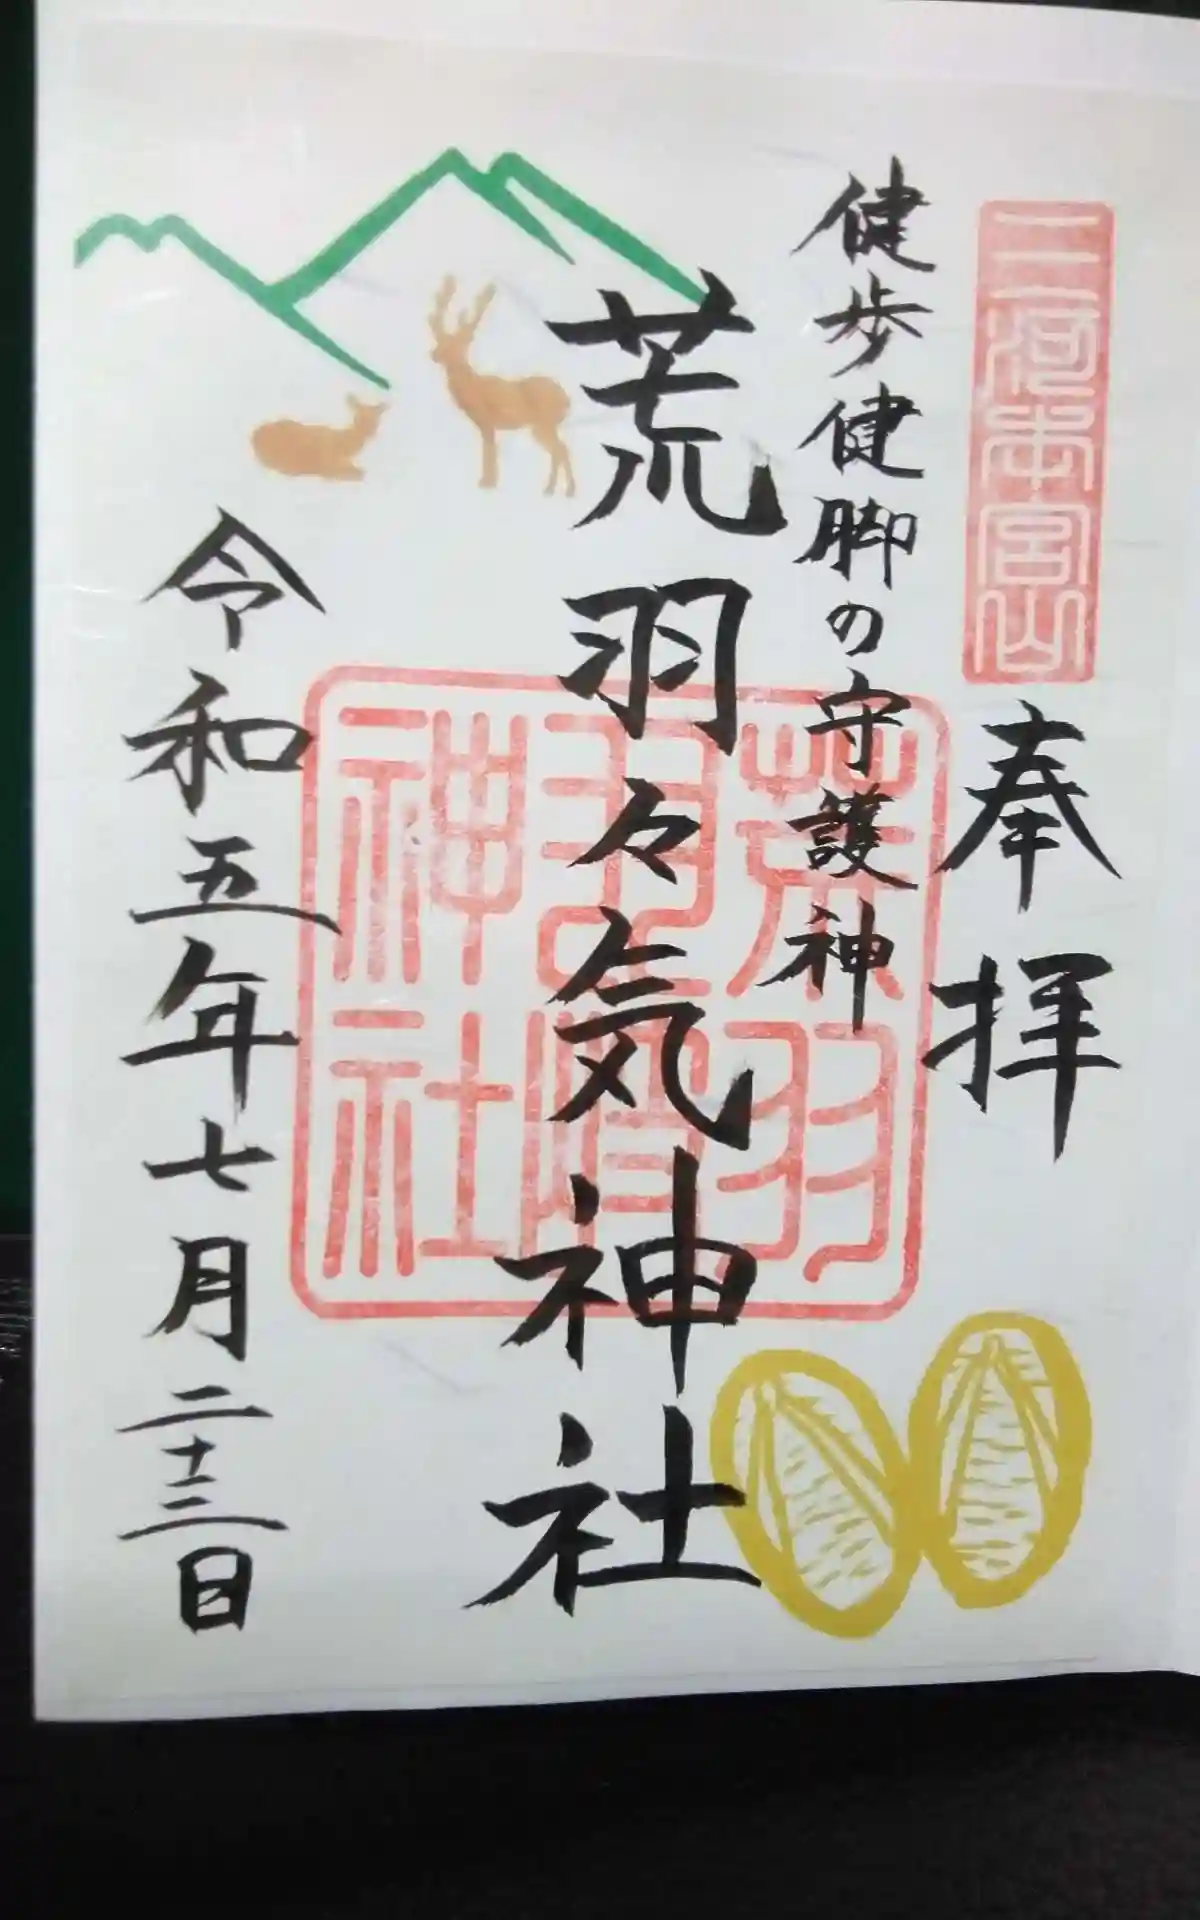 三河本宮山
奉拝
健歩健脚の守護神
荒羽々気神社
令和五年七月二十三日